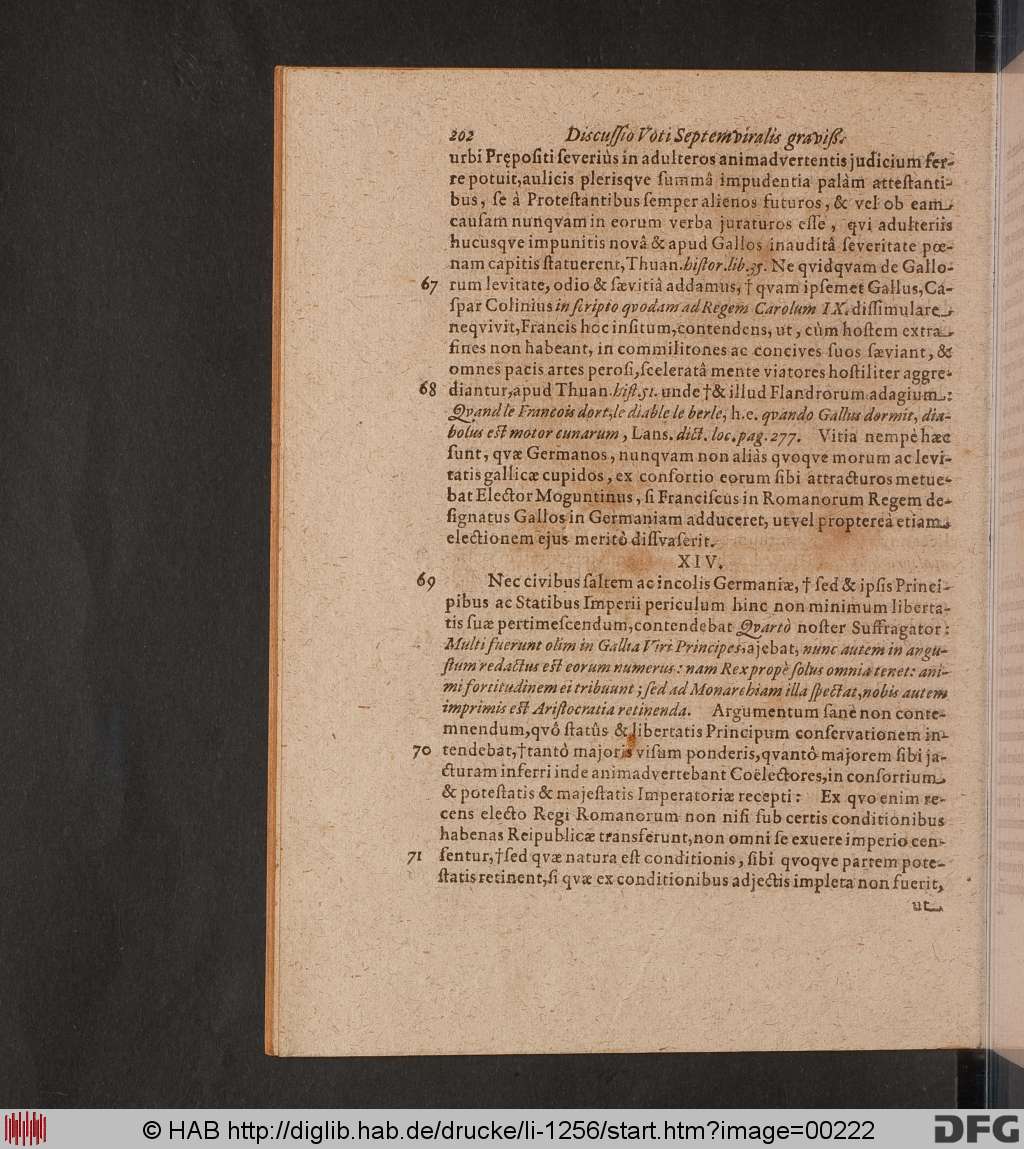 202 Discuſſio Voti Septemviralis graviſſ.
urbi Prępoſiti ſeveriùs in adulteros animadvertentis judicium fer-
re potuit, aulicis plerisqve ſummâ impudentia palàm atteſtanti-
bus, ſe à Proteſtantibus ſemper alienos futuros, & vel ob eam
cauſam nunqvam in eorum verba juraturos eſſe, qvi adulteriis
hucusqve impunitis novâ & apud Gallos inauditâ ſeveritate pœ-
nam capitis ſtatuerent, Thuan. hiſtor. lib. 35. Ne qvidqvam de Gallo-
67 rum levitate, odio & ſævitiâ addamus, † qvam ipſemet Gallus, Ca-
ſpar Colinius in ſcripto qvodam ad Regem Carolum IX. diſſimulare
neqvivit, Francis hoc inſitum, contendens, ut, cùm hoſtem extra
fines non habeant, in commilitones ac concives ſuos ſæviant, &
omnes pacis artes peroſi, ſceleratâ mente viatores hoſtiliter aggre-
68 diantur, apud Thuan. hiſt. 51. unde † & illud Flandrorum adagium:
Qvand le Francois dort, le diable le berle, h. e. qvando Gallus dormit, dia-
bolus eſt motor cunarum, Lans. dict. loc. pag. 277. Vitia nempè hæc
ſunt, qvæ Germanos, nunqvam non aliàs qvoqve morum ac levi-
tatis gallicæ cupidos, ex conſortio eorum ſibi attracturos metue-
bat Elector Moguntinus, ſi Franciſcus in Romanorum Regem de-
ſignatus Gallos in Germaniam adduceret, ut vel proptereà etiam
electionem ejus meritò diſſvaſerit.
XIV.
69 Nec civibus ſaltem ac incolis Germaniæ, † ſed & ipſis Princi-
pibus ac Statibus Imperii periculum hinc non minimum liberta-
tis ſuæ pertimeſcendum, contendebat Qvartò noſter Suffragator:
Multi fuerunt olim in Gallia Viri Principes, ajebat, nunc autem in angu-
ſtum redactus eſt eorum numerus: nam Rex propè ſolus omnia tenet: ani-
mi fortitudinem ei tribuunt; ſed ad Monarchiam illa ſpectat, nobis autem
imprimis eſt Ariſtocratia retinenda. Argumentum ſanè non conte-
mnendum, qvô ſtatûs & libertatis Principum conſervationem in-
70 tendebat, † tantò majoris viſum ponderis, qvantò majorem ſibi ja-
cturam inferri inde animadvertebant Coëlectores, in conſortium
& poteſtatis & majeſtatis Imperatoriæ recepti: Ex qvo enim re-
cens electo Regi Romanorum non niſi ſub certis conditionibus
habenas Reipublicæ transferunt, non omni ſe exuere imperio cen-
71 ſentur, † ſed qvæ natura eſt conditionis, ſibi qvoqve partem pote-
ſtatis retinent, ſi qvæ ex conditionibus adjectis impleta non fuerit,
ut
© HAB http://diglib.hab.de/drucke/li-1256/start.htm?image=00222
DFG